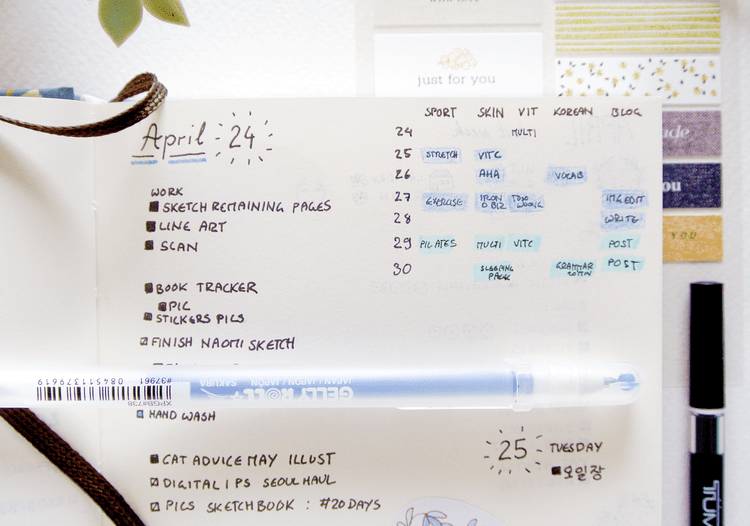 just for you
SPORT SKIN VIT KOREAN BLOG
24 MULTI
25 STRETCH VITC
26 AHA VOCAB
27 EXERCISE IRON IMG EDIT
28 WRITE
29 PILATES MULTI VITC POST
30 SLEEPING PACK GRAMMAR POST
you
YOU
April 24
WORK
SKETCH REMAINING PAGES
LINE ART
SCAN
BOOK TRACKER
PIC
STICKERS PICS
FINISH NAOMI SKETCH
#37961 XPGB#736
0 84511 37961 9
SAKURA JAPAN / JAPON / JAPÓN
GELLY ROLL
HAND WASH
25 TUESDAY
오일장
CAT ADVICE MAY ILLUST
DIGITAL IPS SEOUL HAUL
PICS SKETCHBOOK : #20DAYS